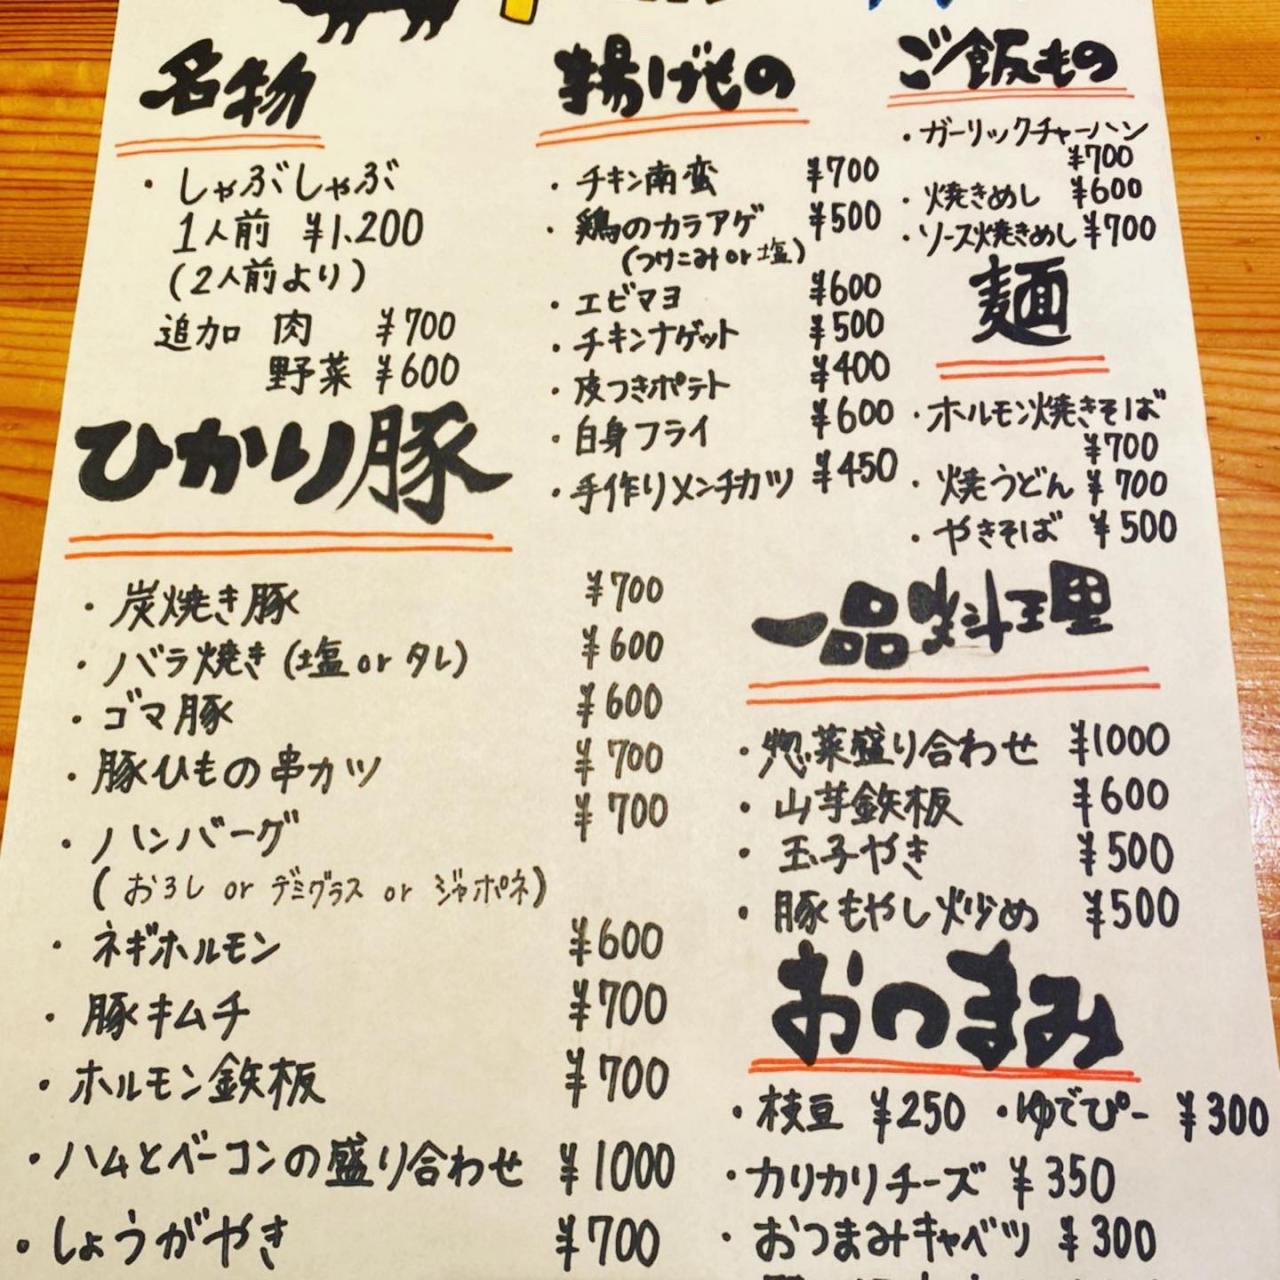 名物
・しゃぶしゃぶ
1人前 ¥1,200
(2人前より)
追加 肉 ¥700
野菜 ¥600
ひかり豚
・炭焼き豚 ¥700
・バラ焼き(塩 or タレ) ¥600
・ゴマ豚 ¥600
・豚ひもの串カツ ¥700
・ハンバーグ ¥700
(おろし or デミグラス or ジャポネ)
・ネギホルモン ¥600
・豚キムチ ¥700
・ホルモン鉄板 ¥700
・ハムとベーコンの盛り合わせ ¥1000
・しょうがやき ¥700
揚げもの
・チキン南蛮 ¥700
・鶏のカラアゲ ¥500
(つけこみ or 塩)
・エビマヨ ¥600
・チキンナゲット ¥500
・皮つきポテト ¥400
・白身フライ ¥600
・手作りメンチカツ ¥450
ご飯もの
・ガーリックチャーハン
¥700
・焼きめし ¥600
・ソース焼きめし ¥700
麺
・ホルモン焼きそば
¥700
・焼うどん ¥700
・やきそば ¥500
一品料理
・惣菜盛り合わせ ¥1000
・山芋鉄板 ¥600
・玉子やき ¥500
・豚もやし炒め ¥500
おつまみ
・枝豆 ¥250 ・ゆでぴー ¥300
・カリカリチーズ ¥350
・おつまみキャベツ ¥300